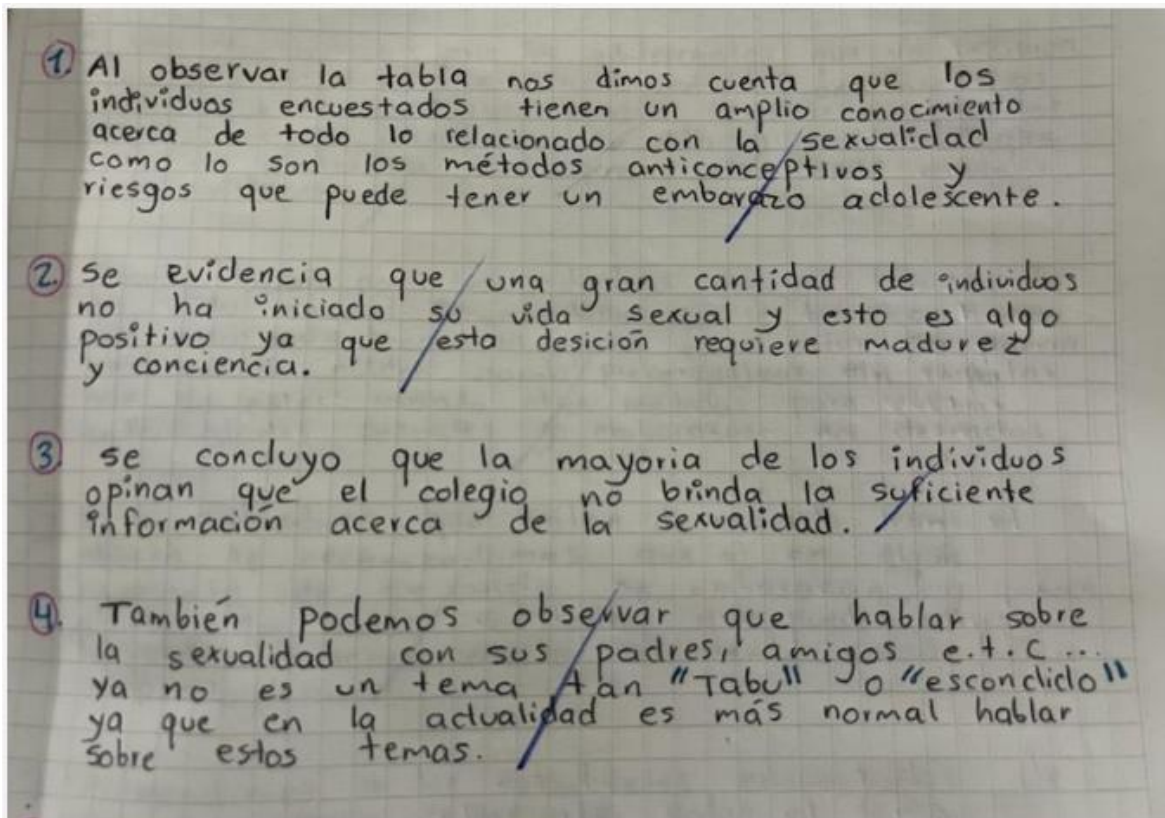 1. Al observar la tabla nos dimos cuenta que los
individuos encuestados tienen un amplio conocimiento
acerca de todo lo relacionado con la sexualidad
como lo son los métodos anticonceptivos y
riesgos que puede tener un embarazo adolescente.
2. se evidencia que una gran cantidad de individuos
no ha iniciado su vida sexual y esto es algo
positivo ya que esta desición requiere madurez
y conciencia.
3. se concluyo que la mayoria de los individuos
opinan que el colegio no brinda la suficiente
información acerca de la sexualidad.
4. También podemos observar que hablar sobre
la sexualidad con sus padres, amigos e.t.c...
ya no es un tema tan "Tabu" o "escondido"
ya que en la actualidad es más normal hablar
sobre estos temas.